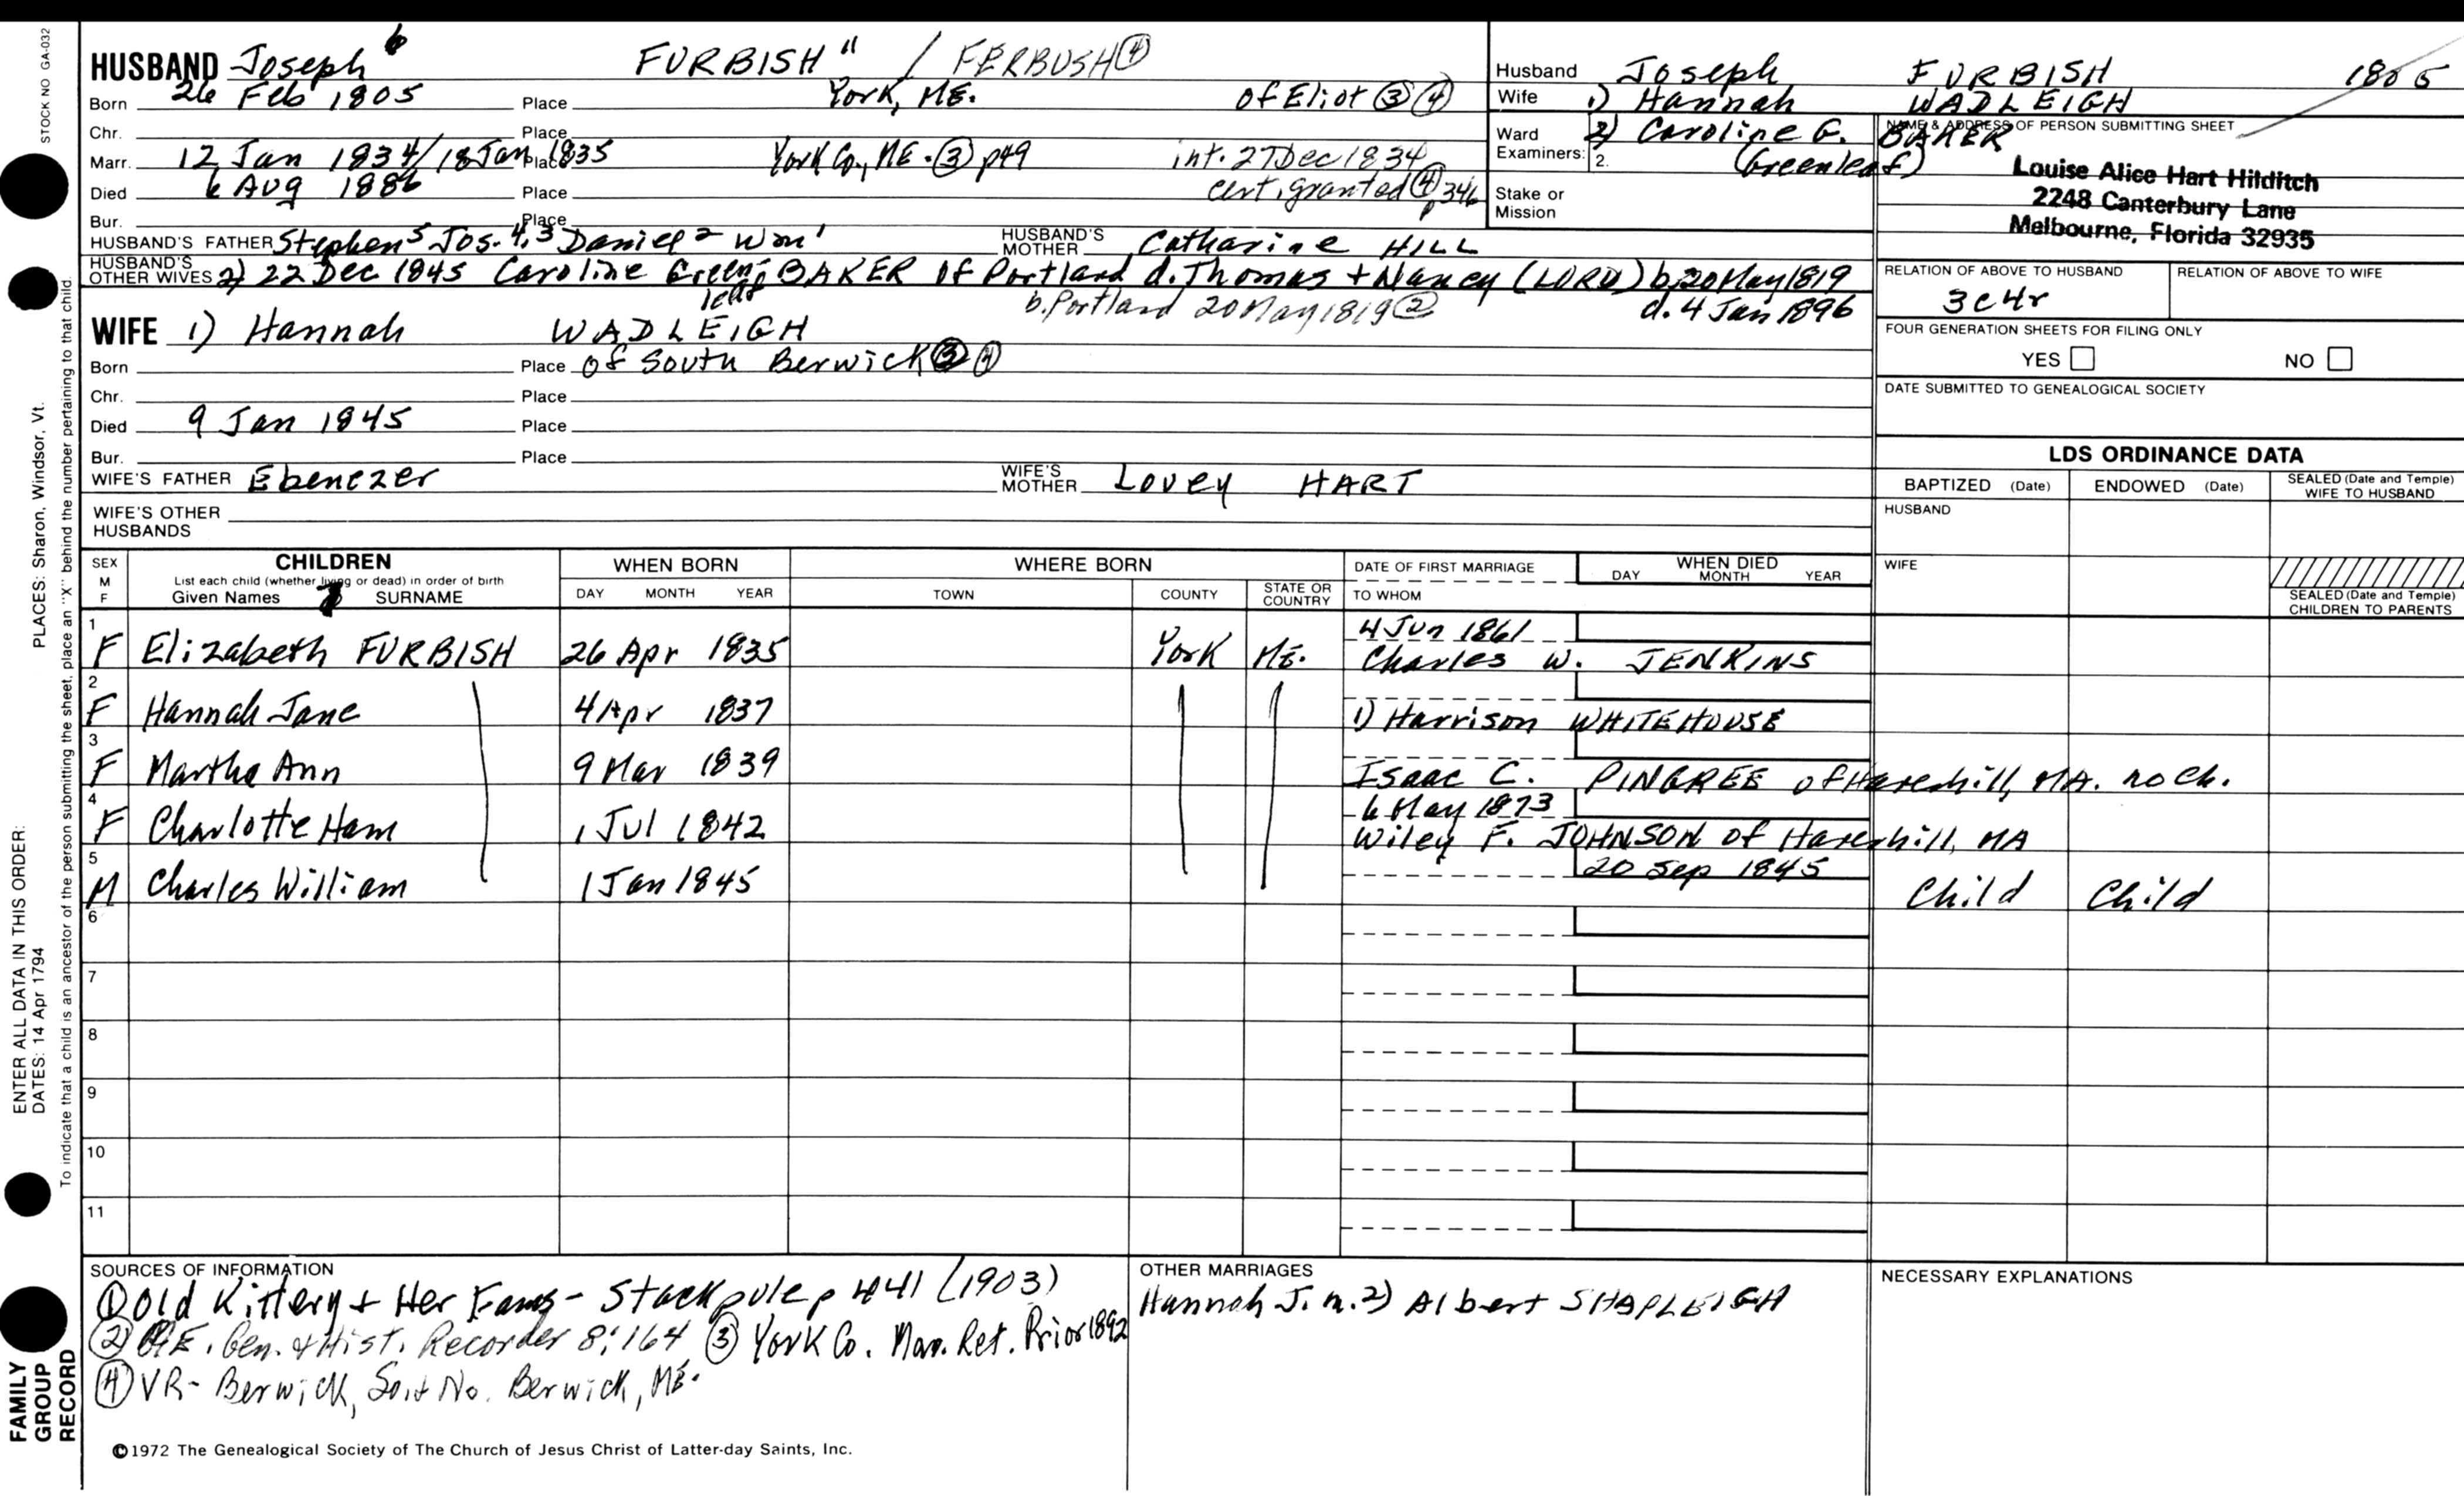 STOCK NO GA-032
PLACES: Sharon, Windsor, Vt.
ENTER ALL DATA IN THIS ORDER:
DATES: 14 Apr 1794
To indicate that a child is an ancestor of the person submitting the sheet, place an "X" behind the number pertaining to that child.
FAMILY GROUP RECORD
HUSBAND Joseph 6 FURBISH" / FERBUSH ④
Born 26 Feb 1805 Place York, ME. of Eliot ③ ④
Chr. Place
Marr. 12 Jan 1834/18 Jan 1835 Place York Co., ME. ③ p49 int. 27 Dec 1834
Died 6 Aug 1886 Place cert. granted ④ p 346
Bur. Place
HUSBAND'S FATHER Stephen 5 Jos. 4,3 Daniel 2 Wm 1 HUSBAND'S MOTHER Catharine HILL
HUSBAND'S OTHER WIVES 2) 22 Dec 1845 Caroline Greenleaf BAKER of Portland d. Thomas + Nancy (LORD) b. 20 May 1819
b. Portland 20 May 1819 ② d. 4 Jan 1896
WIFE 1) Hannah WADLEIGH
Born Place of South Berwick ③ ④
Chr. Place
Died 9 Jan 1845 Place
Bur. Place
WIFE'S FATHER Ebenezer WIFE'S MOTHER Lovey HART
WIFE'S OTHER HUSBANDS
Husband Joseph FURBISH 1805
Wife 1) Hannah WADLEIGH
Ward 2) Caroline G. BAKER
Examiners: 2. (Greenleaf)
Stake or Mission
NAME & ADDRESS OF PERSON SUBMITTING SHEET
Louise Alice Hart Hilditch
2248 Canterbury Lane
Melbourne, Florida 32935
RELATION OF ABOVE TO HUSBAND RELATION OF ABOVE TO WIFE
3c4r
FOUR GENERATION SHEETS FOR FILING ONLY
YES NO
DATE SUBMITTED TO GENEALOGICAL SOCIETY
LDS ORDINANCE DATA
BAPTIZED (Date) ENDOWED (Date) SEALED (Date and Temple) WIFE TO HUSBAND
HUSBAND
WIFE
SEALED (Date and Temple) CHILDREN TO PARENTS
SEX M F CHILDREN WHEN BORN WHERE BORN DATE OF FIRST MARRIAGE WHEN DIED
List each child (whether living or dead) in order of birth
Given Names SURNAME DAY MONTH YEAR TOWN COUNTY STATE OR COUNTRY TO WHOM DAY MONTH YEAR
1 4 Jun 1861
F Elizabeth FURBISH 26 Apr 1835 York ME. Charles W. JENKINS
2
F Hannah Jane 4 Apr 1837 1) Harrison WHITEHOUSE
3
F Martha Ann 9 Mar 1839 Isaac C. PINGREE of Haverhill, MA. no ch.
4 6 May 1873
F Charlotte Ham 1 Jul 1842 Wiley F. JOHNSON of Haverhill, MA
5 20 Sep 1845
M Charles William 1 Jan 1845 Child Child
6
7
8
9
10
11
SOURCES OF INFORMATION
① Old Kittery + Her Fams - Stackpole p 441 (1903)
② ME. Gen. & Hist. Recorder 8:164 ③ York Co. Mar. Ret. Prior 1892
④ VR- Berwick, So. + No. Berwick, ME.
OTHER MARRIAGES
Hannah J. m. 2) Albert SHAPLEIGH
NECESSARY EXPLANATIONS
©1972 The Genealogical Society of The Church of Jesus Christ of Latter-day Saints, Inc.